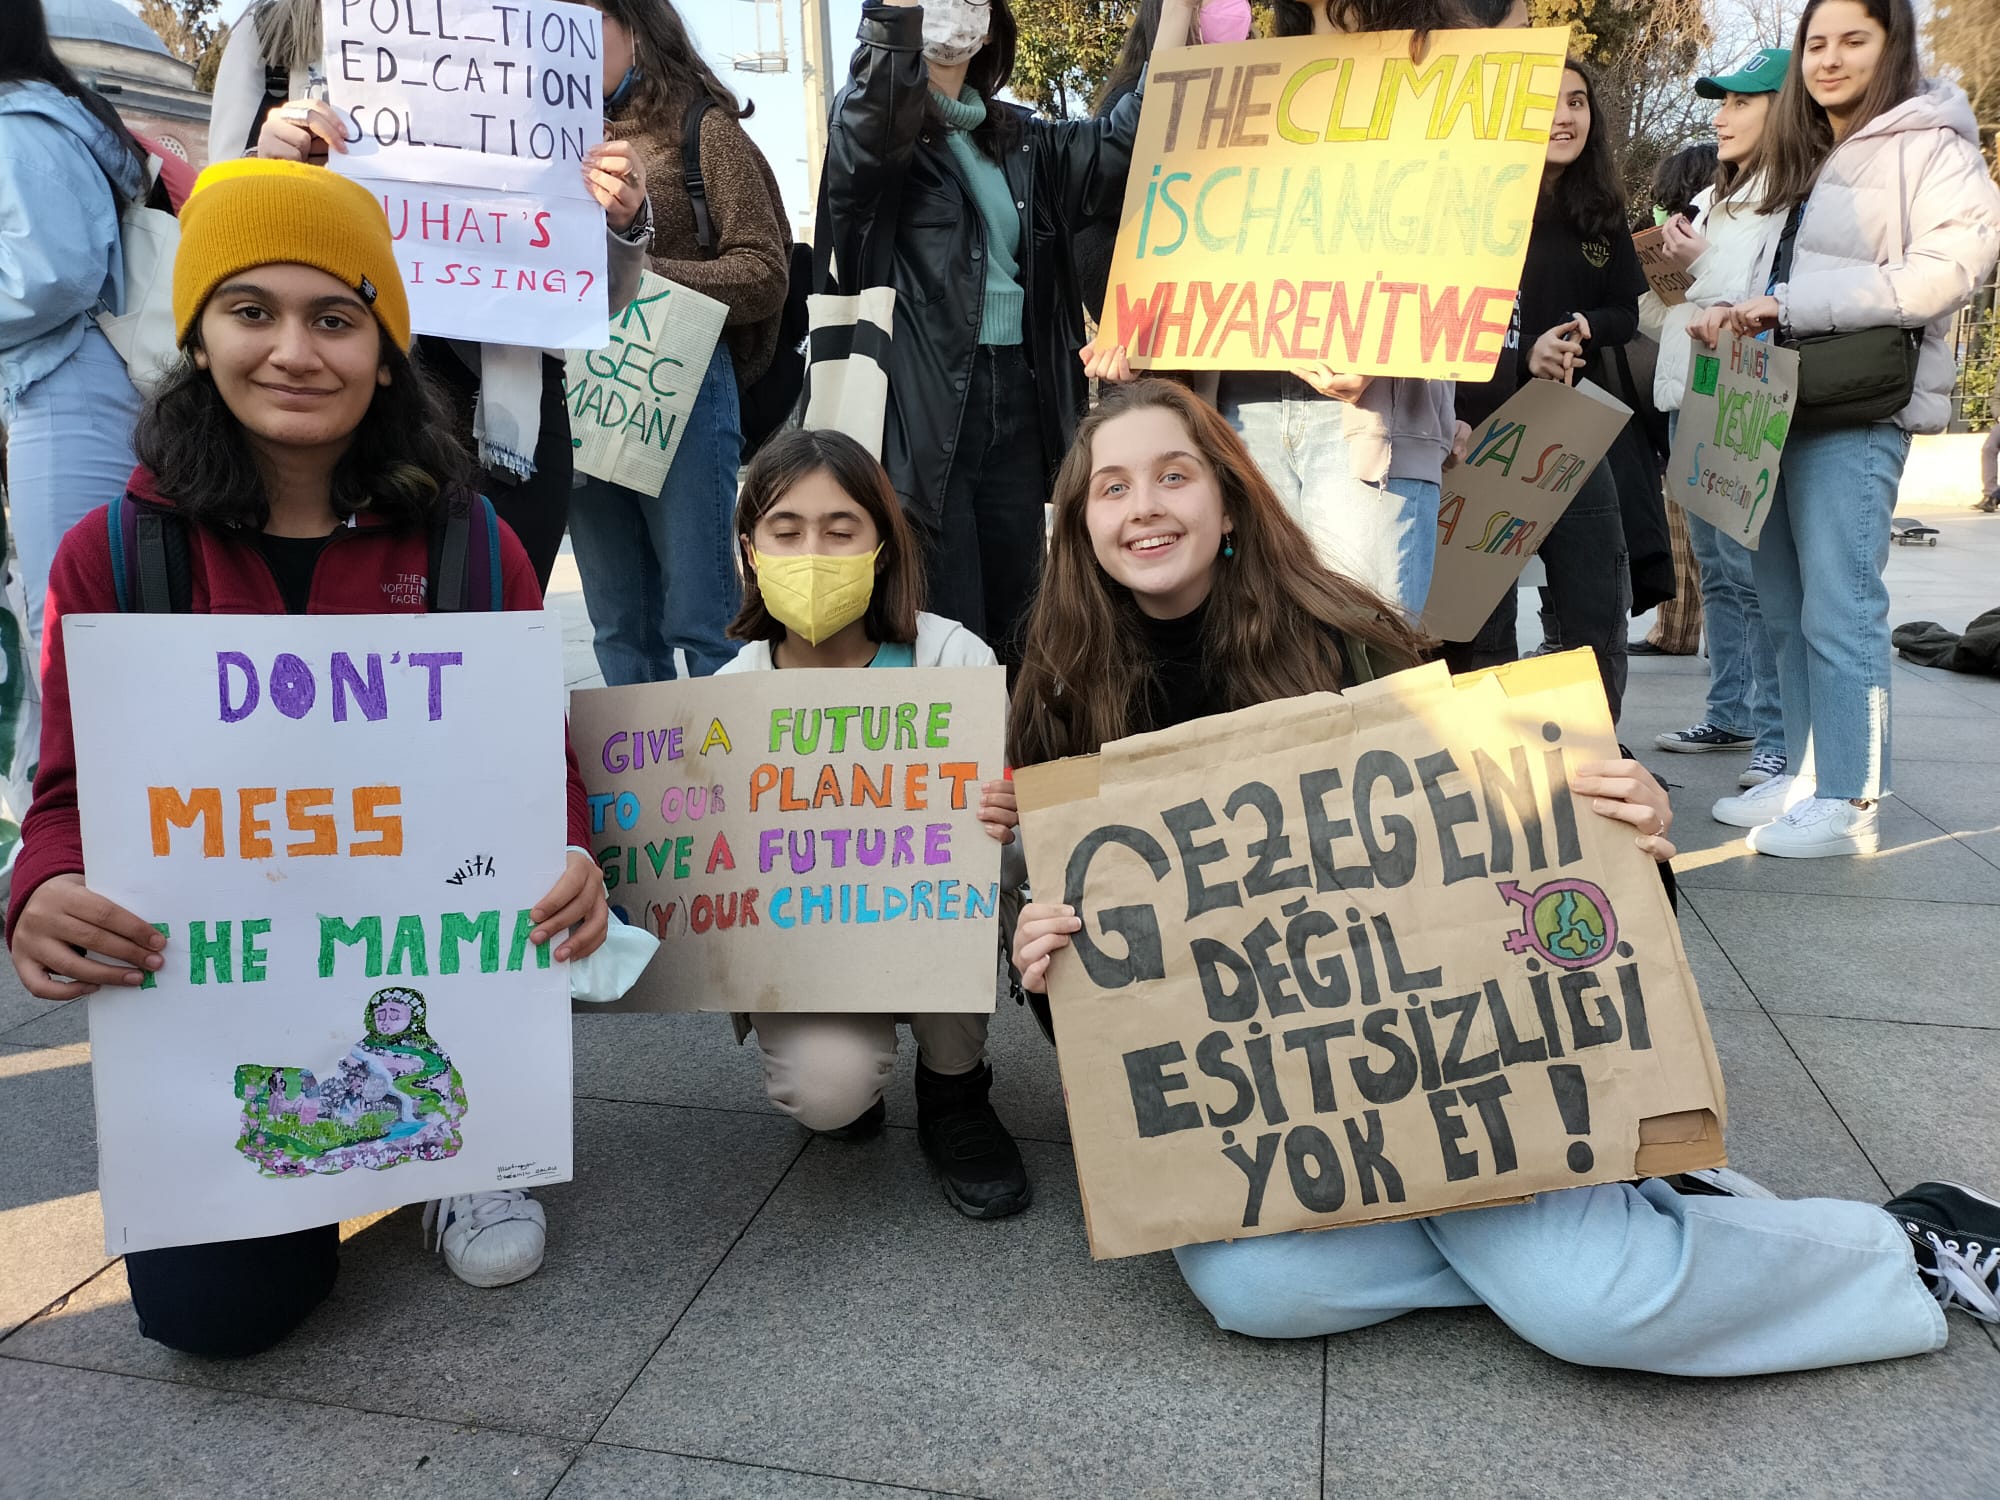 POLL_TION
ED_CATION
SOL_TION
WHAT'S
ISSING?
THE CLIMATE
IS CHANGING
WHY AREN'T WE
GEÇ
MADAN
YA SIFIR
YA SIFIR
HANGİ
YEŞİLİ
Seçeceksin?
FOSSIL
THE
NORTH
FACE
DON'T
MESS
with
THE MAMA
GIVE A FUTURE
TO OUR PLANET
GIVE A FUTURE
(Y)OUR CHILDREN
GEZEGENİ
DEĞİL
EŞİTSİZLİĞİ
YOK ET!